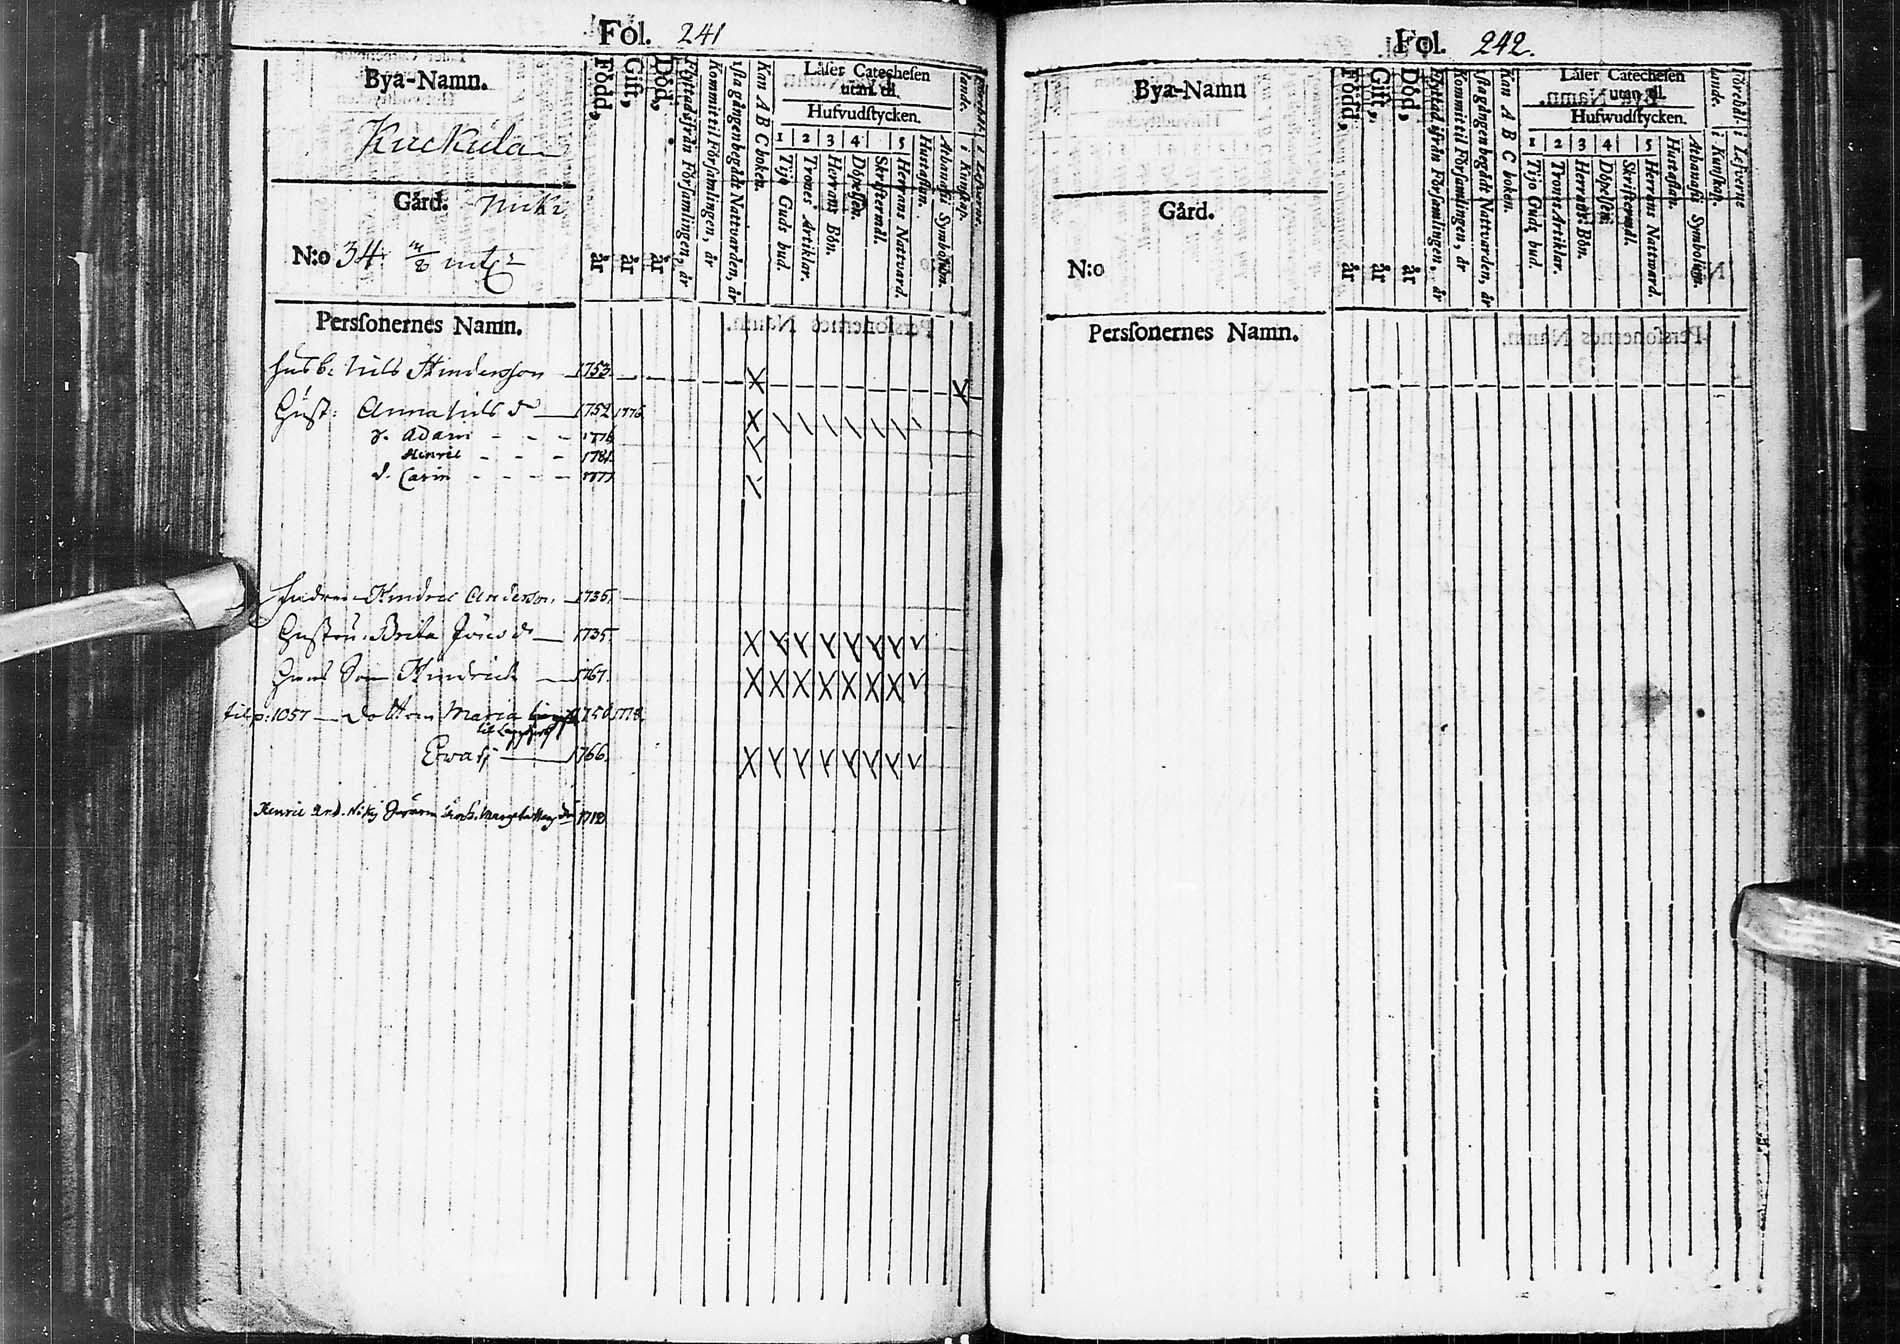 Fol. 241
Bya-Namn.
Kuckula
Gård. Niki
N:o 34.
Persſonernes Namn.
Född, år
Gift, år
Död, år
Flyttad ifrån Förſamlingen, år
Kommit til Förſamlingen, år
1ſta gången begådt Nattvarden, år
Kan A B C boken.
Läſer Catecheſen utan til.
Hufvudſtycken.
1 2 3 4 5
Tijo Guds bud.
Trones Artiklar.
Herrans Bön.
Döpelſen.
Skriftermål.
Herrans Nattvard.
Huſtaflan.
Athanaſii Symbolum.
i Kunſkap.
husb. Nils Hindersson 1753
Hust: Anna Nils dr 1752 1776
s. Adam 1776
Hinric 1781
d. Carin 1777
Hindric Anderson 1735
Hustru. Brita 1735
Son Hindrick 1767
til p: 1057 Dottren Maria 1750 1778
Ewa 1766
Henric And. Niki 1712
Fol. 242.
Bya-Namn
Gård.
N:o
Persſonernes Namn.
Född, år
Gift, år
Död, år
Flyttad ifrån Förſamlingen, år
Kommit til Förſamlingen, år
1ſta gången begådt Nattvarden, år
Kan A B C boken.
Läſer Catecheſen utan til.
Hufwudſtycken.
1 2 3 4 5
Tijo Guds bud.
Trones Artiklar.
Herrans Bön.
Döpelſen.
Skriftermål.
Herrans Nattward.
Huſtaflan.
Athanaſii Symbolum.
i Kunſkap.
i Lefverne